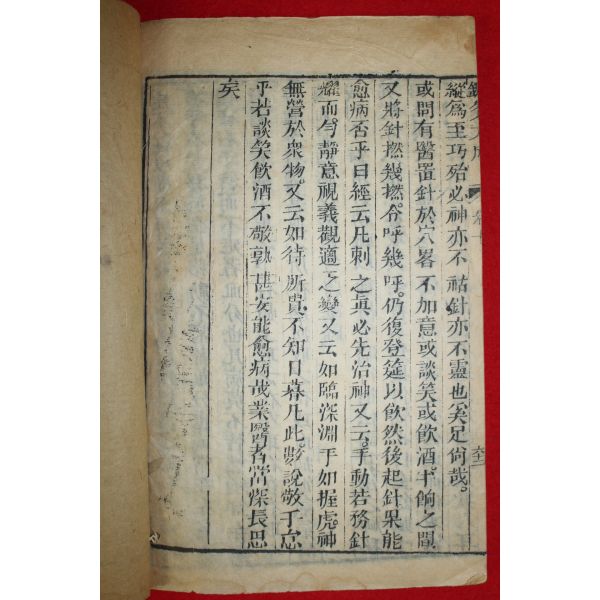 鍼灸大成 卷十 六十二
縱爲玉巧殆必神亦不祐針亦不靈也奚足尚哉
或問有醫置針於穴畧不加意或談笑或飲酒半餉之間
又將針撚幾撚令呼幾呼仍復登筵以飲然後起針果能
愈病否乎曰經云凡刺之眞必先治神又云手動若務針
耀而勻靜意視義觀適之變又云如臨深淵手如握虎神
無營於衆物又云如待所貴不知日暮凡此數說敬乎怠
乎若談笑飲酒不敬孰甚安能愈病哉業醫者當深長思
矣